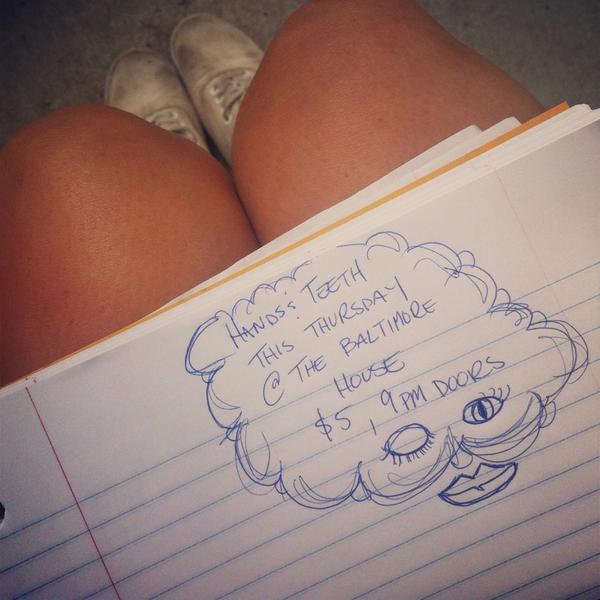 HANDS & TEETH
THIS THURSDAY
@ THE BALTIMORE
HOUSE
$5, 9PM DOORS